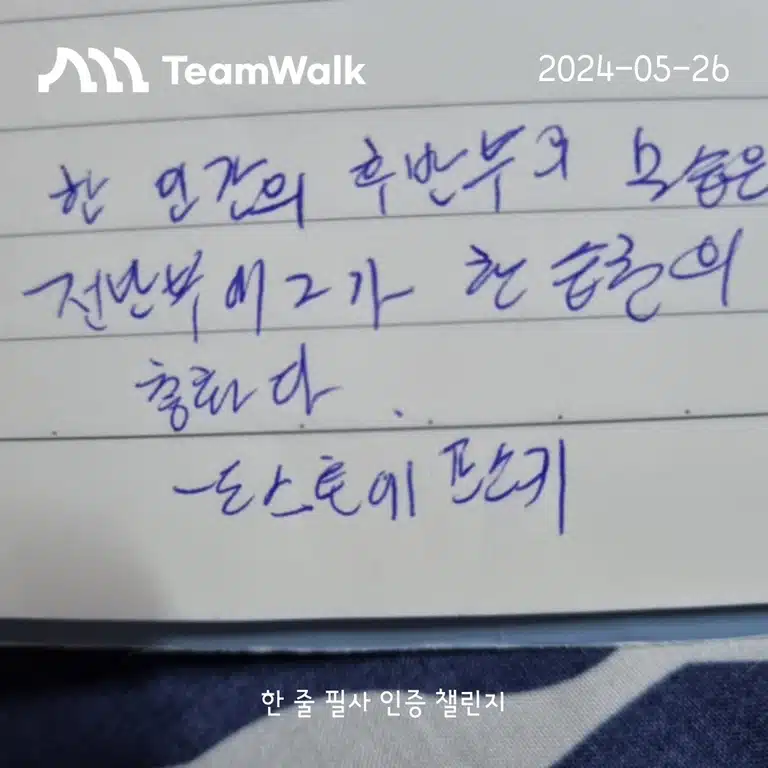 TeamWalk
2024-05-26
한 인간의 후반부의 모습은
전반부에 그가 한 습관의
총화다.
-도스토에프스키
한 줄 필사 인증 챌린지